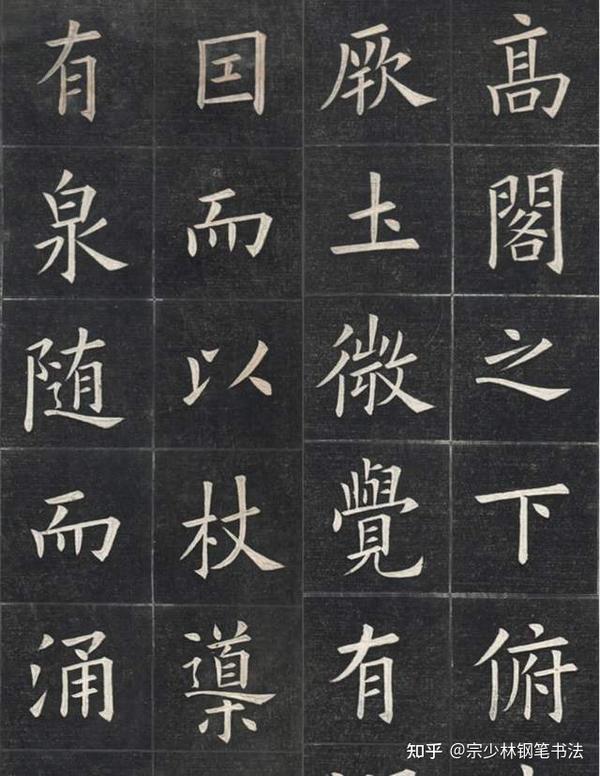 高閣之下俯
厥土微覺有
因而以杖導
有泉随而涌
知乎 @宗少林钢笔书法